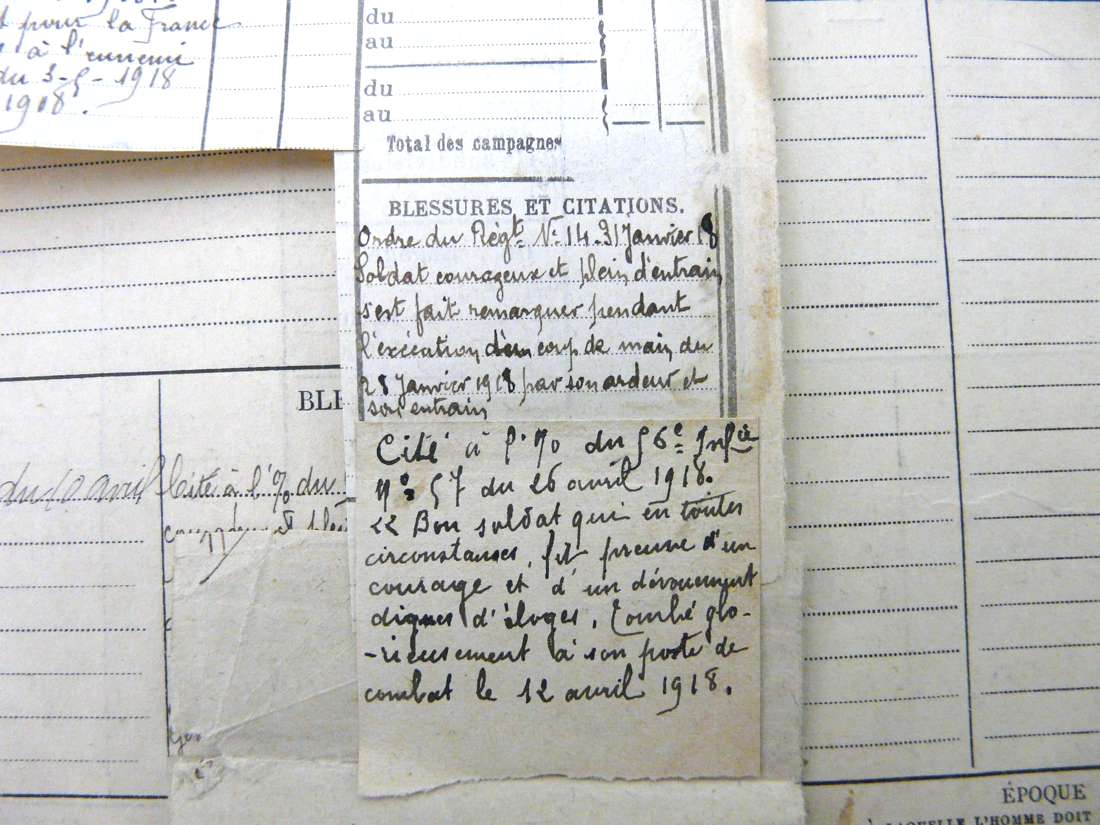 t pour la France
à l'ennemi
du 3-5-1918
1918.
du
au
du
au
Total des campagnes
BLESSURES ET CITATIONS.
Ordre du Régt. No 14-31 Janvier 18
Soldat courageux et plein d'entrain
s'est fait remarquer pendant
l'exécution d'un coup de main du
28 Janvier 1918 par son ardeur et
son entrain
BLE
Cité à l'o/o du 56e Infie
No 57 du 26 avril 1918.
<< Bon soldat qui en toutes
circonstances, fit preuve d'un
courage et d'un dévouement
dignes d'éloges. Tombé glo-
-rieusement à son poste de
combat le 12 avril 1918.
du 10 avril
Cité à l'o/o du
ÉPOQUE
à LAQUELLE L'HOMME DOIT